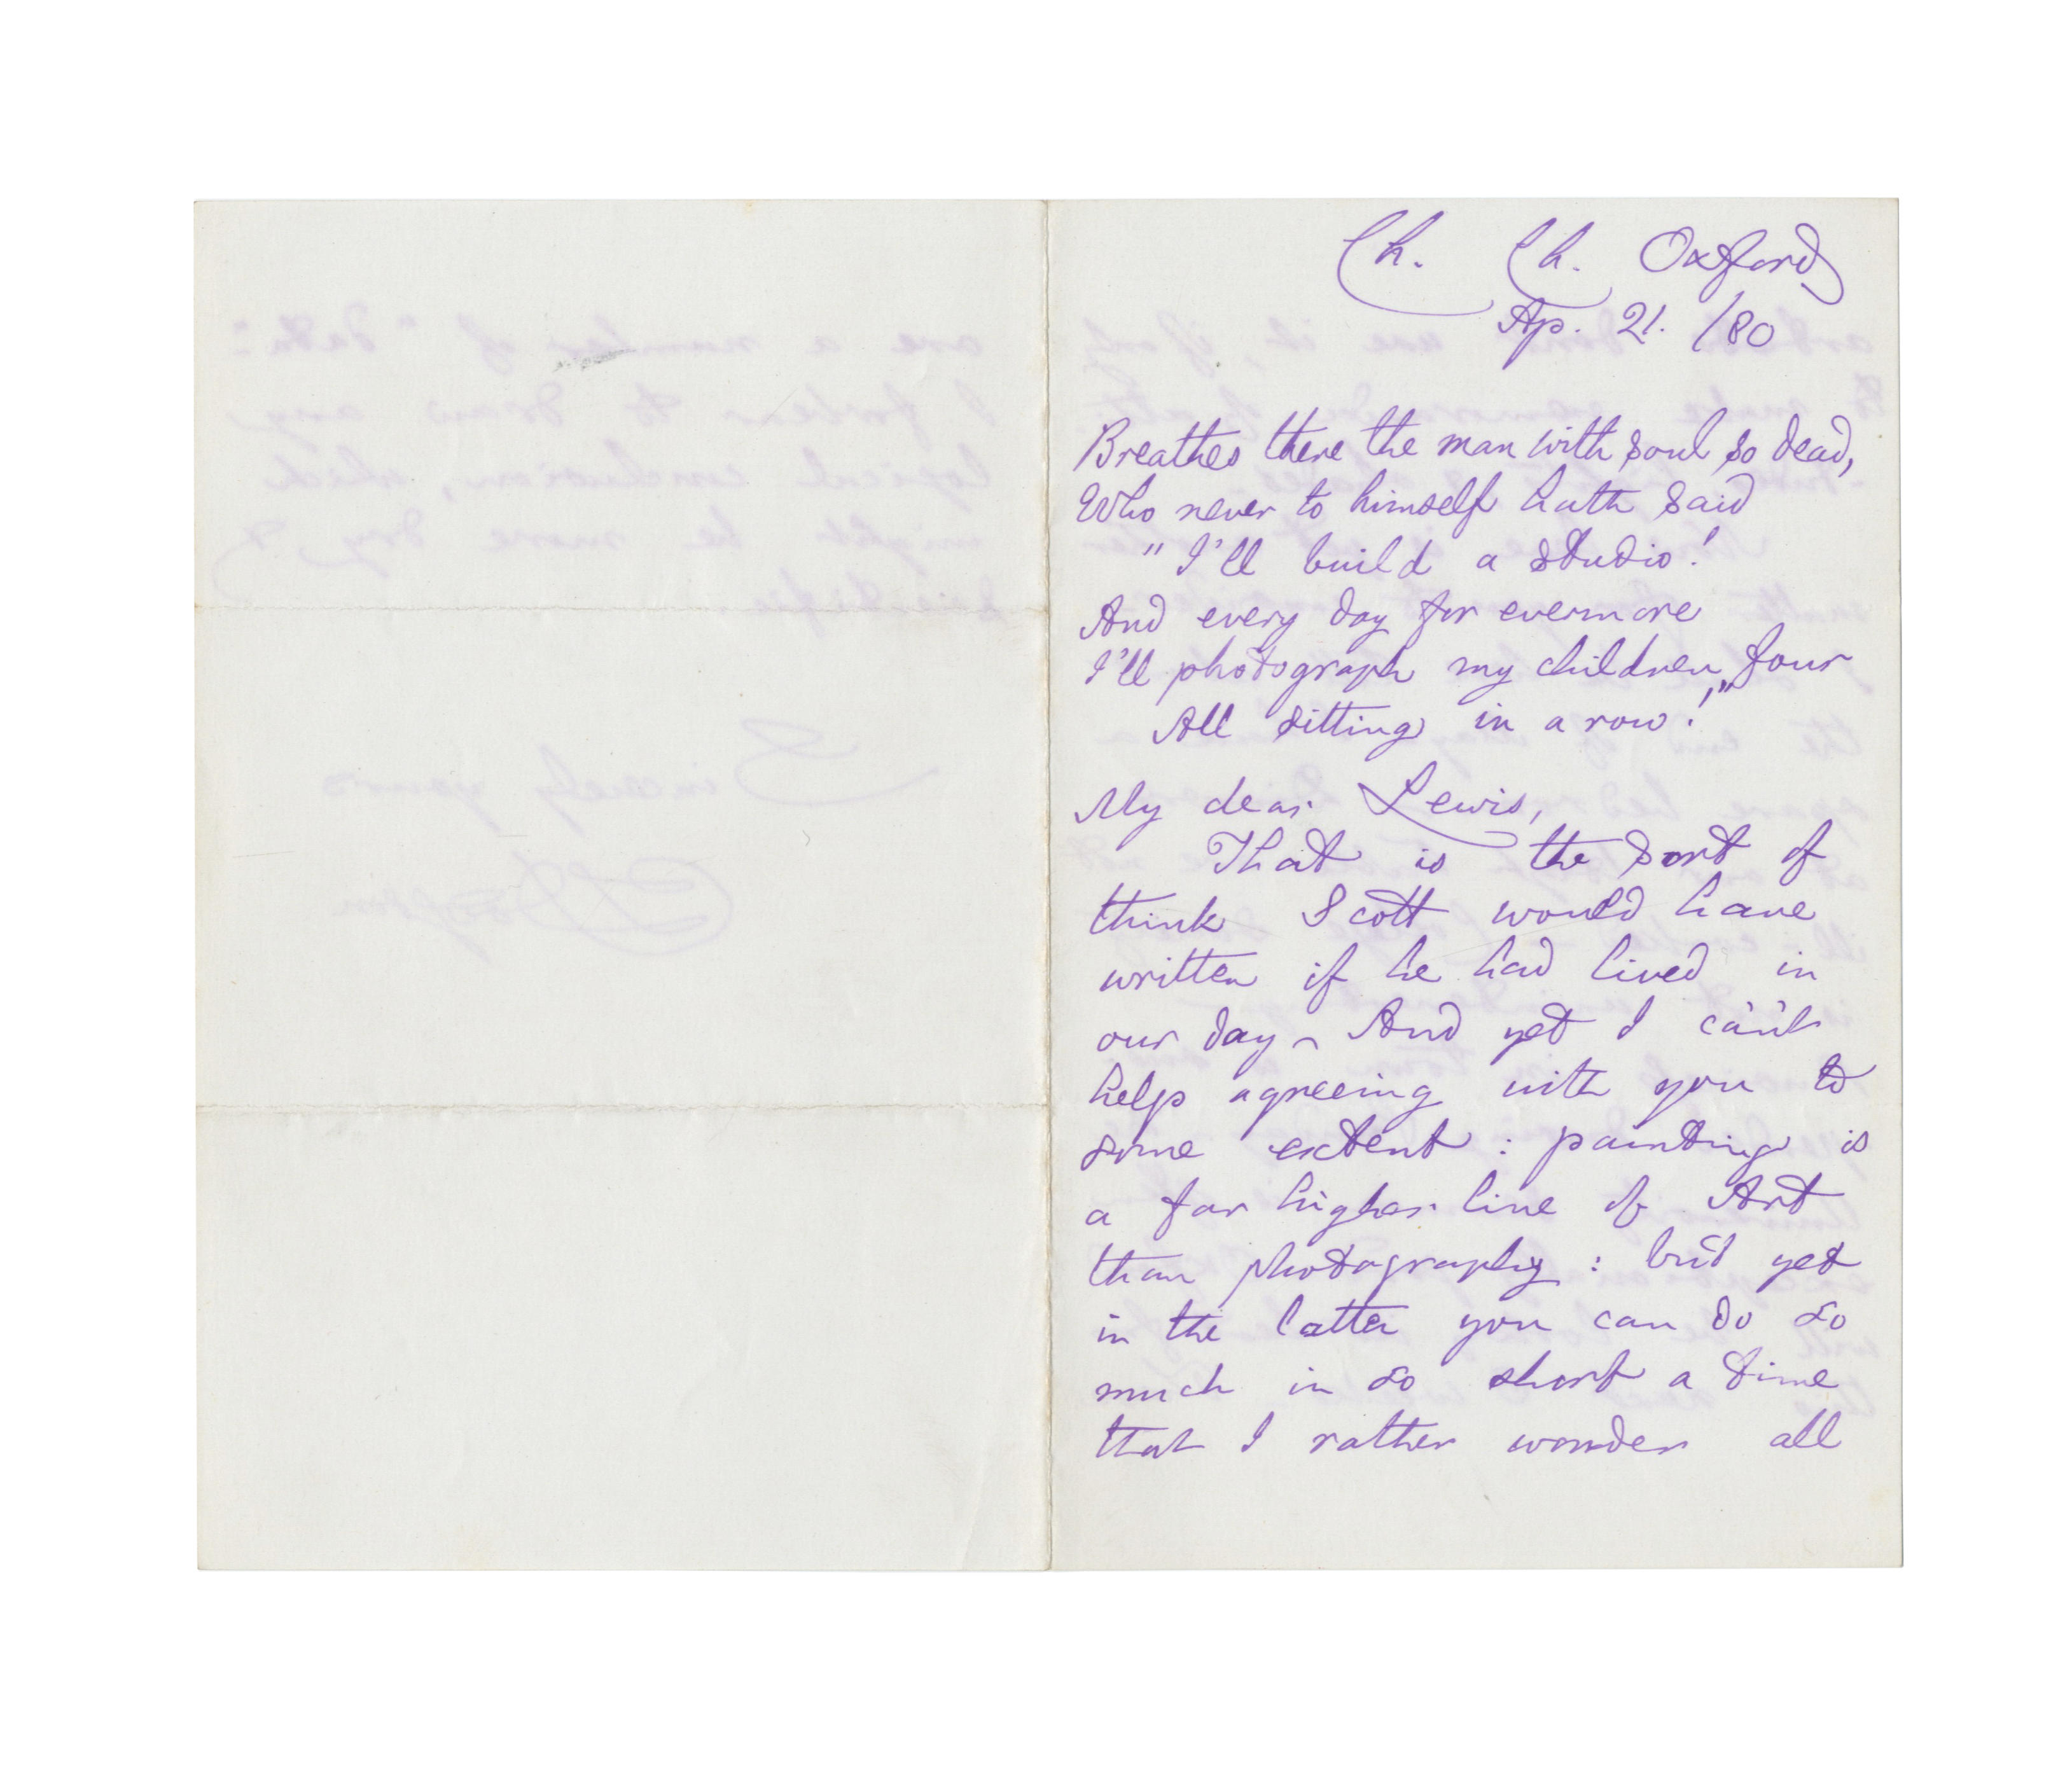 Ch. Ch. Oxford
Ap. 21. /80
Breathes there the man with soul so dead,
Who never to himself hath said
"I'll build a studio!
And every day for evermore
I'll photograph my children four
All sitting in a row!"
My dear Lewis,
That is the sort of
think Scott would have
written if he had lived in
our day – And yet I ca'n't
help agreeing with you to
some extent : painting is
a far higher line of Art
than photography : but yet
in the latter you can do so
much in so short a time
that I rather wonder all